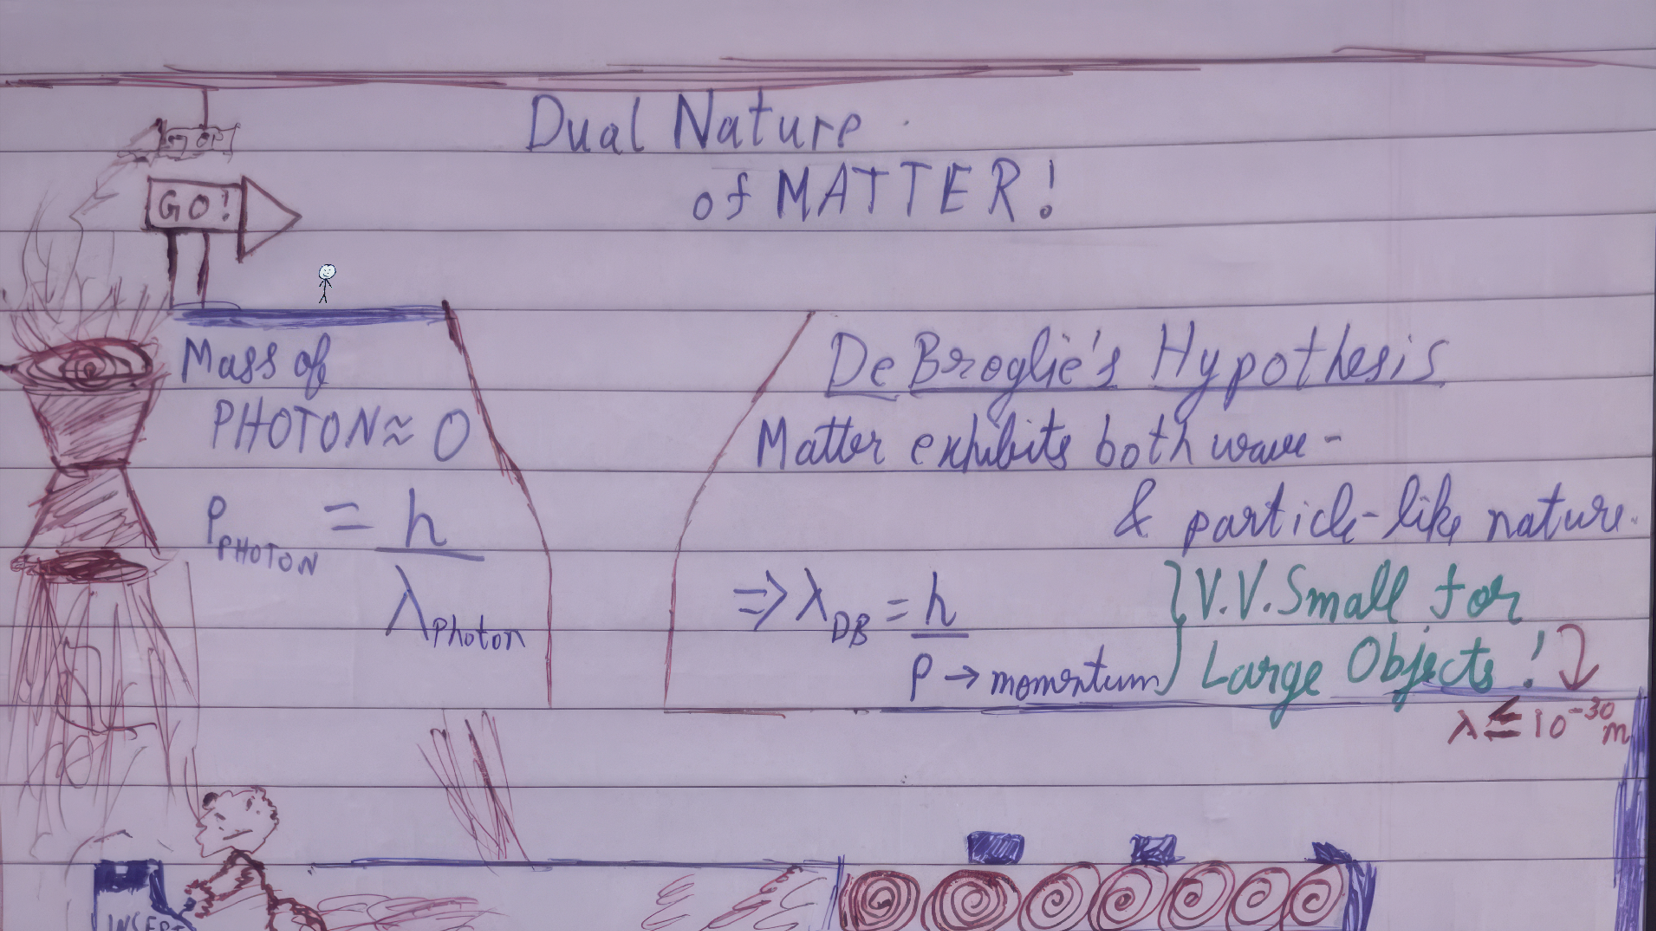 Dual Nature
of MATTER!
GO!
Mass of
PHOTON ≈ 0
P_PHOTON = h / λ_Photon
De Broglie's Hypothesis
Matter exhibits both wave-
& particle-like nature.
⇒ λ_DB = h / P → momentum
} V.V. Small for
Large Objects!
λ ≤ 10^-30 m